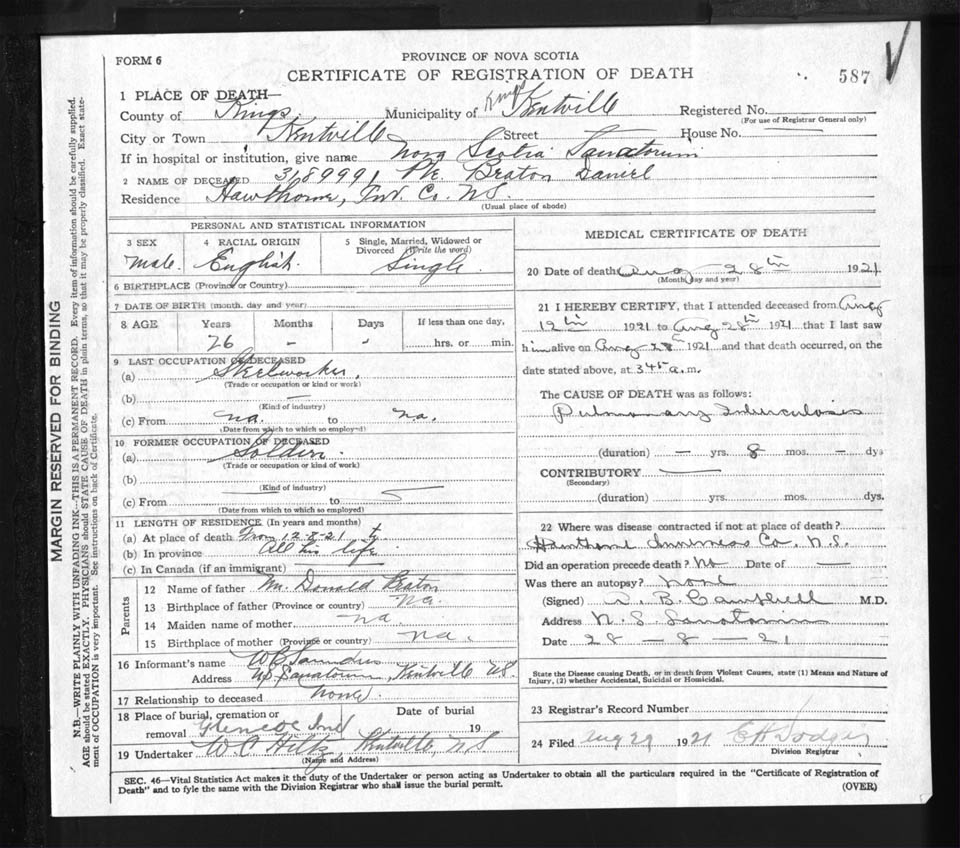 FORM 6
PROVINCE OF NOVA SCOTIA
CERTIFICATE OF REGISTRATION OF DEATH
587
1 PLACE OF DEATH—
County of Kings
Municipality of Kings Kentville
Registered No.
(For use of Registrar General only)
City or Town Kentville
Street
House No.
If in hospital or institution, give name Nova Scotia Sanatorium
2 NAME OF DECEASED 3189991 Pte. Beaton Daniel
Residence Hawthorne, Inv. Co. N.S.
(Usual place of abode)
PERSONAL AND STATISTICAL INFORMATION
3 SEX
Male
4 RACIAL ORIGIN
English
5 Single, Married, Widowed or Divorced (Write the word)
Single
6 BIRTHPLACE (Province or Country)
7 DATE OF BIRTH (month, day and year)
8 AGE
Years
Months
Days
If less than one day,
26 - -
hrs. or min.
9 LAST OCCUPATION OF DECEASED
(a) Steelworker
(Trade or occupation or kind or work)
(b) —
(Kind of industry)
(c) From na. to na.
(Date from which to which so employed)
10 FORMER OCCUPATION OF DECEASED
(a) Soldier.
(Trade or occupation or kind of work)
(b)
(Kind of industry)
(c) From to
(Date from which to which so employed)
11 LENGTH OF RESIDENCE (In years and months)
(a) At place of death From 12-8-21
(b) In province All his life
(c) In Canada (if an immigrant)
Parents
12 Name of father Mr. Donald Beaton
13 Birthplace of father (Province or country) na.
14 Maiden name of mother na.
15 Birthplace of mother (Province or country) na.
16 Informant's name
Address NS Sanatorium, Kentville NS.
17 Relationship to deceased None
18 Place of burial, cremation or removal Glencoe Ind
Date of burial 19
19 Undertaker Kentville, NS
(Name and Address)
MEDICAL CERTIFICATE OF DEATH
20 Date of death Aug 28th 1921
(Month, day and year)
21 I HEREBY CERTIFY, that I attended deceased from Aug
12th 1921 to Aug 28th 1921 that I last saw
him alive on Aug 28th 1921 and that death occurred, on the
date stated above, at 3 45 a.m.
The CAUSE OF DEATH was as follows:
Pulmonary Tuberculosis
(duration) — yrs. 8 mos. — dys
CONTRIBUTORY —
(Secondary)
(duration) yrs. mos. dys.
22 Where was disease contracted if not at place of death?
Hawthorne Inverness Co. N.S.
Did an operation precede death? No Date of —
Was there an autopsy? None
(Signed) A. B. Campbell M.D.
Address N.S. Sanatorium
Date 28 — 8 — 21
State the Disease causing Death, or in death from Violent Causes, state (1) Means and Nature of
Injury, (2) whether Accidental, Suicidal or Homicidal.
23 Registrar's Record Number
24 Filed Aug 29 1921 E H Dodge
Division Registrar
SEC. 46—Vital Statistics Act makes it the duty of the Undertaker or person acting as Undertaker to obtain all the particulars required in the "Certificate of Registration of
Death" and to fyle the same with the Division Registrar who shall issue the burial permit.
(OVER)
MARGIN RESERVED FOR BINDING
N.B.—WRITE PLAINLY WITH UNFADING INK—THIS IS A PERMANENT RECORD. Every item of information should be carefully supplied.
AGE should be stated EXACTLY. PHYSICIANS should STATE CAUSE OF DEATH in plain terms, so that it may be properly classified. Exact statement of OCCUPATION is very important. See instructions on back of Certificate.